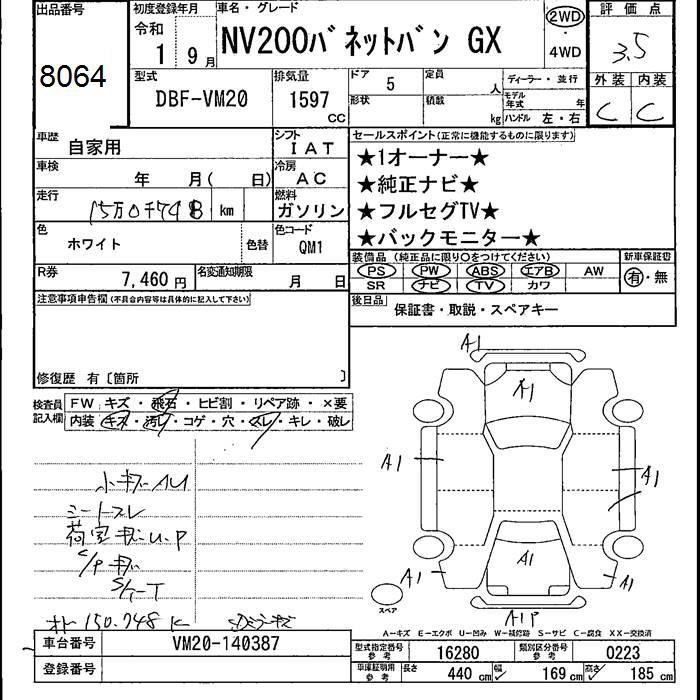 出品番号
8064
初度登録年月
令和
1 9月
車名・グレード
NV200バネットバン GX
2WD
・
4WD
評価点
3.5
型式
DBF-VM20
排気量
1597
CC
ドア 5
定員 人
形状
積載 kg
ディーラー・並行
モデル年式 年
ハンドル 左・右
外装 内装
C C
車歴
自家用
シフト
IAT
車検
年 月( 日)
冷房
AC
走行
15万0千748 km
燃料
ガソリン
色
ホワイト
色替
色コード
QM1
R券
7,460円
名変通知期限
月 日
セールスポイント(正常に機能するものに限ります)
★1オーナー★
★純正ナビ★
★フルセグTV★
★バックモニター★
装備品(純正品に限り○をつけてください)
PS PW ABS エアB AW
SR ナビ TV カワ
新車保証書
有・無
後日品
保証書・取説・スペアキー
注意事項申告欄(不具合内容等は具体的に記入して下さい)
修復歴 有〔箇所 〕
検査員記入欄
FW キズ・飛石・ヒビ割・リペア跡・×要
内装 キズ・汚れ・コゲ・穴・スレ・キレ・破レ
小キズ AU
シートスレ
荷室キズU.P
S/Pキズ
150.748K
A1
A1
A1
A1
A1
A1
A1
A1P
スペア
A-キズ E-エクボ U-凹み W-補修跡 S-サビ C-腐食 XX-交換済
車台番号
VM20-140387
登録番号
型式指定番号 参考
16280
類別区分番号 参考
0223
車庫証明用 参考
長さ 440cm
幅 169cm
高さ 185cm